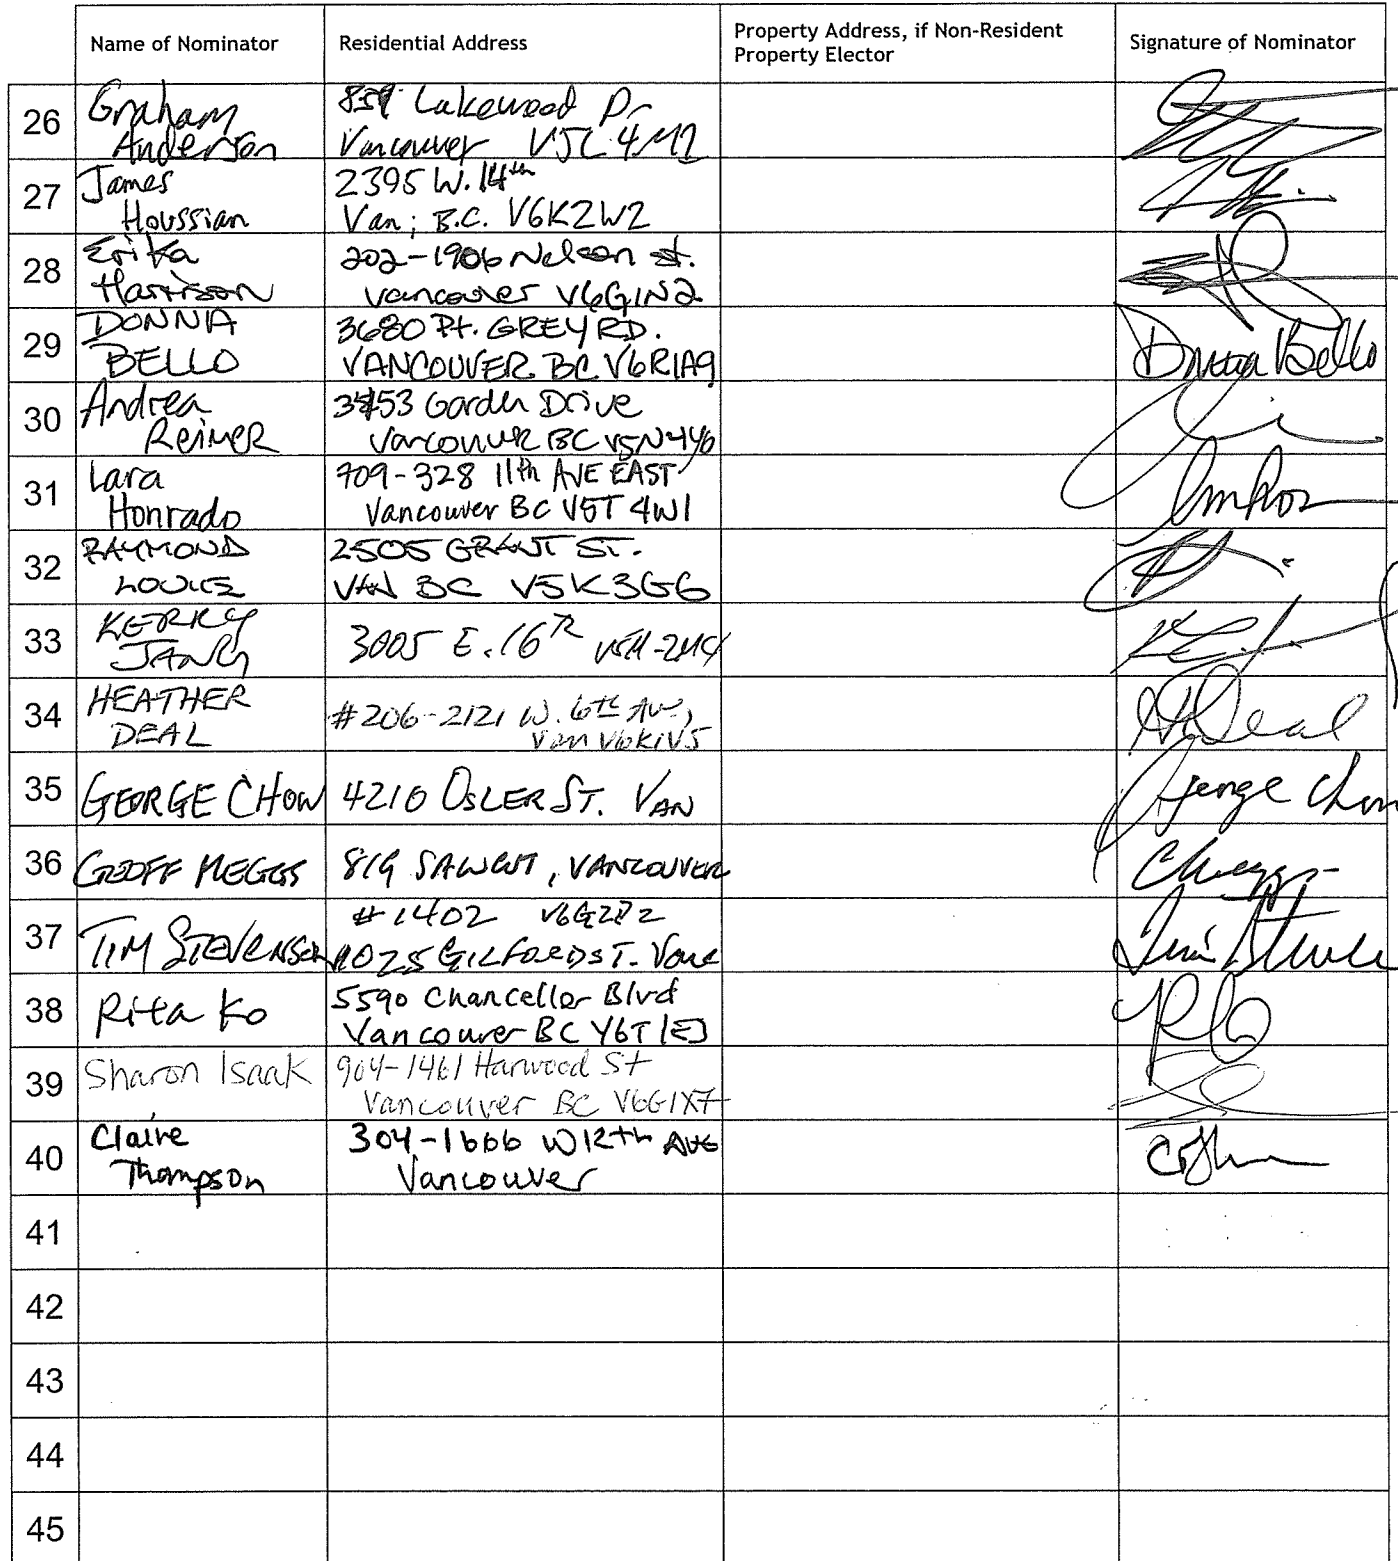 Name of Nominator
Residential Address
Property Address, if Non-Resident
Property Elector
Signature of Nominator
26
Graham
Anderson
859 Lakewood Dr
Vancouver V5L 4M2
27
James
Houssian
2395 W. 14th
Van; B.C. V6K2W2
28
Erika
Harrison
202-1906 Nelson st.
Vancouver V6G1N2
29
DONNA
BELLO
3680 Pt. GREY RD.
VANCOUVER BC V6R1A9
Donna Bello
30
Andrea
Reimer
Garden Drive
Vancouver BC V5N4Y6
31
Lara
Honrado
709-328 11th AVE EAST
Vancouver BC V5T 4W1
32
RAYMOND
LOUIE
2505 GRANT ST.
VAN BC V5K3G6
33
KERRY
JANG
3005 E. 16th V5M-2M4
34
HEATHER
DEAL
#206-2121 W. 6th Ave,
Van V6K1V5
HDeal
35
GEORGE CHOW
4210 OSLER ST. VAN
George Chow
36
GEOFF MEGGS
VANCOUVER
GMeggs
37
TIM STEVENSON
#1402 V6G2R2
1025 GILFORD ST. Vanc
Tim Steve
38
Rita Ko
5590 Chancellor Blvd
Vancouver BC V6T1E3
39
Sharon Isaak
904-1461 Harwood St
Vancouver BC V6G1X7
40
Claire
Thompson
304-1666 W12th Ave
Vancouver
41
42
43
44
45